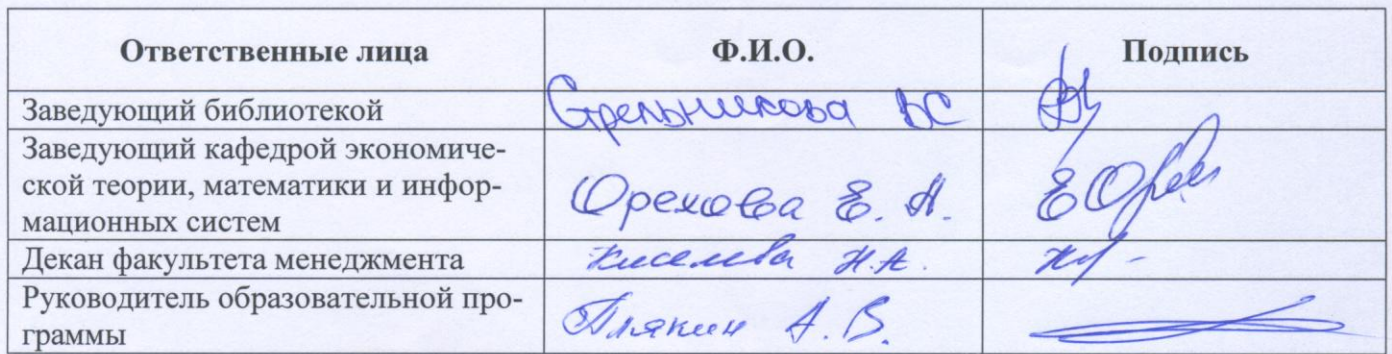 Ответственные лица Ф.И.О. Подпись
Заведующий библиотекой Стрельникова ВС
Заведующий кафедрой экономиче-
ской теории, математики и инфор-
мационных систем Орехова Е. А.
Декан факультета менеджмента Киселева Н.А.
Руководитель образовательной про-
граммы Плякин А. В.